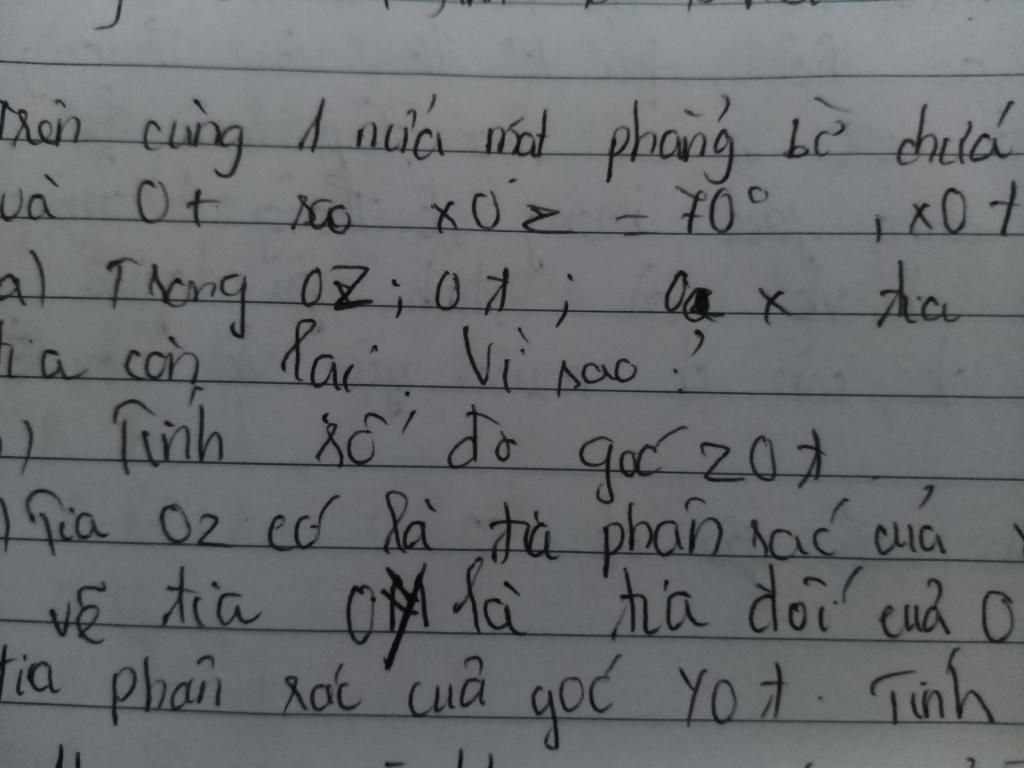 Trên cùng 1 nửa mặt phẳng bờ chứa
và Ot sao xOz = 70°, xOt
a) Trong Oz; Ot; Ox tia
tia còn lại. Vì sao?
) Tính số đo góc zOt
) Tia Oz có là tia phân sác của
vẽ tia Oy là tia đối của O
tia phân sác của góc yOt. Tính